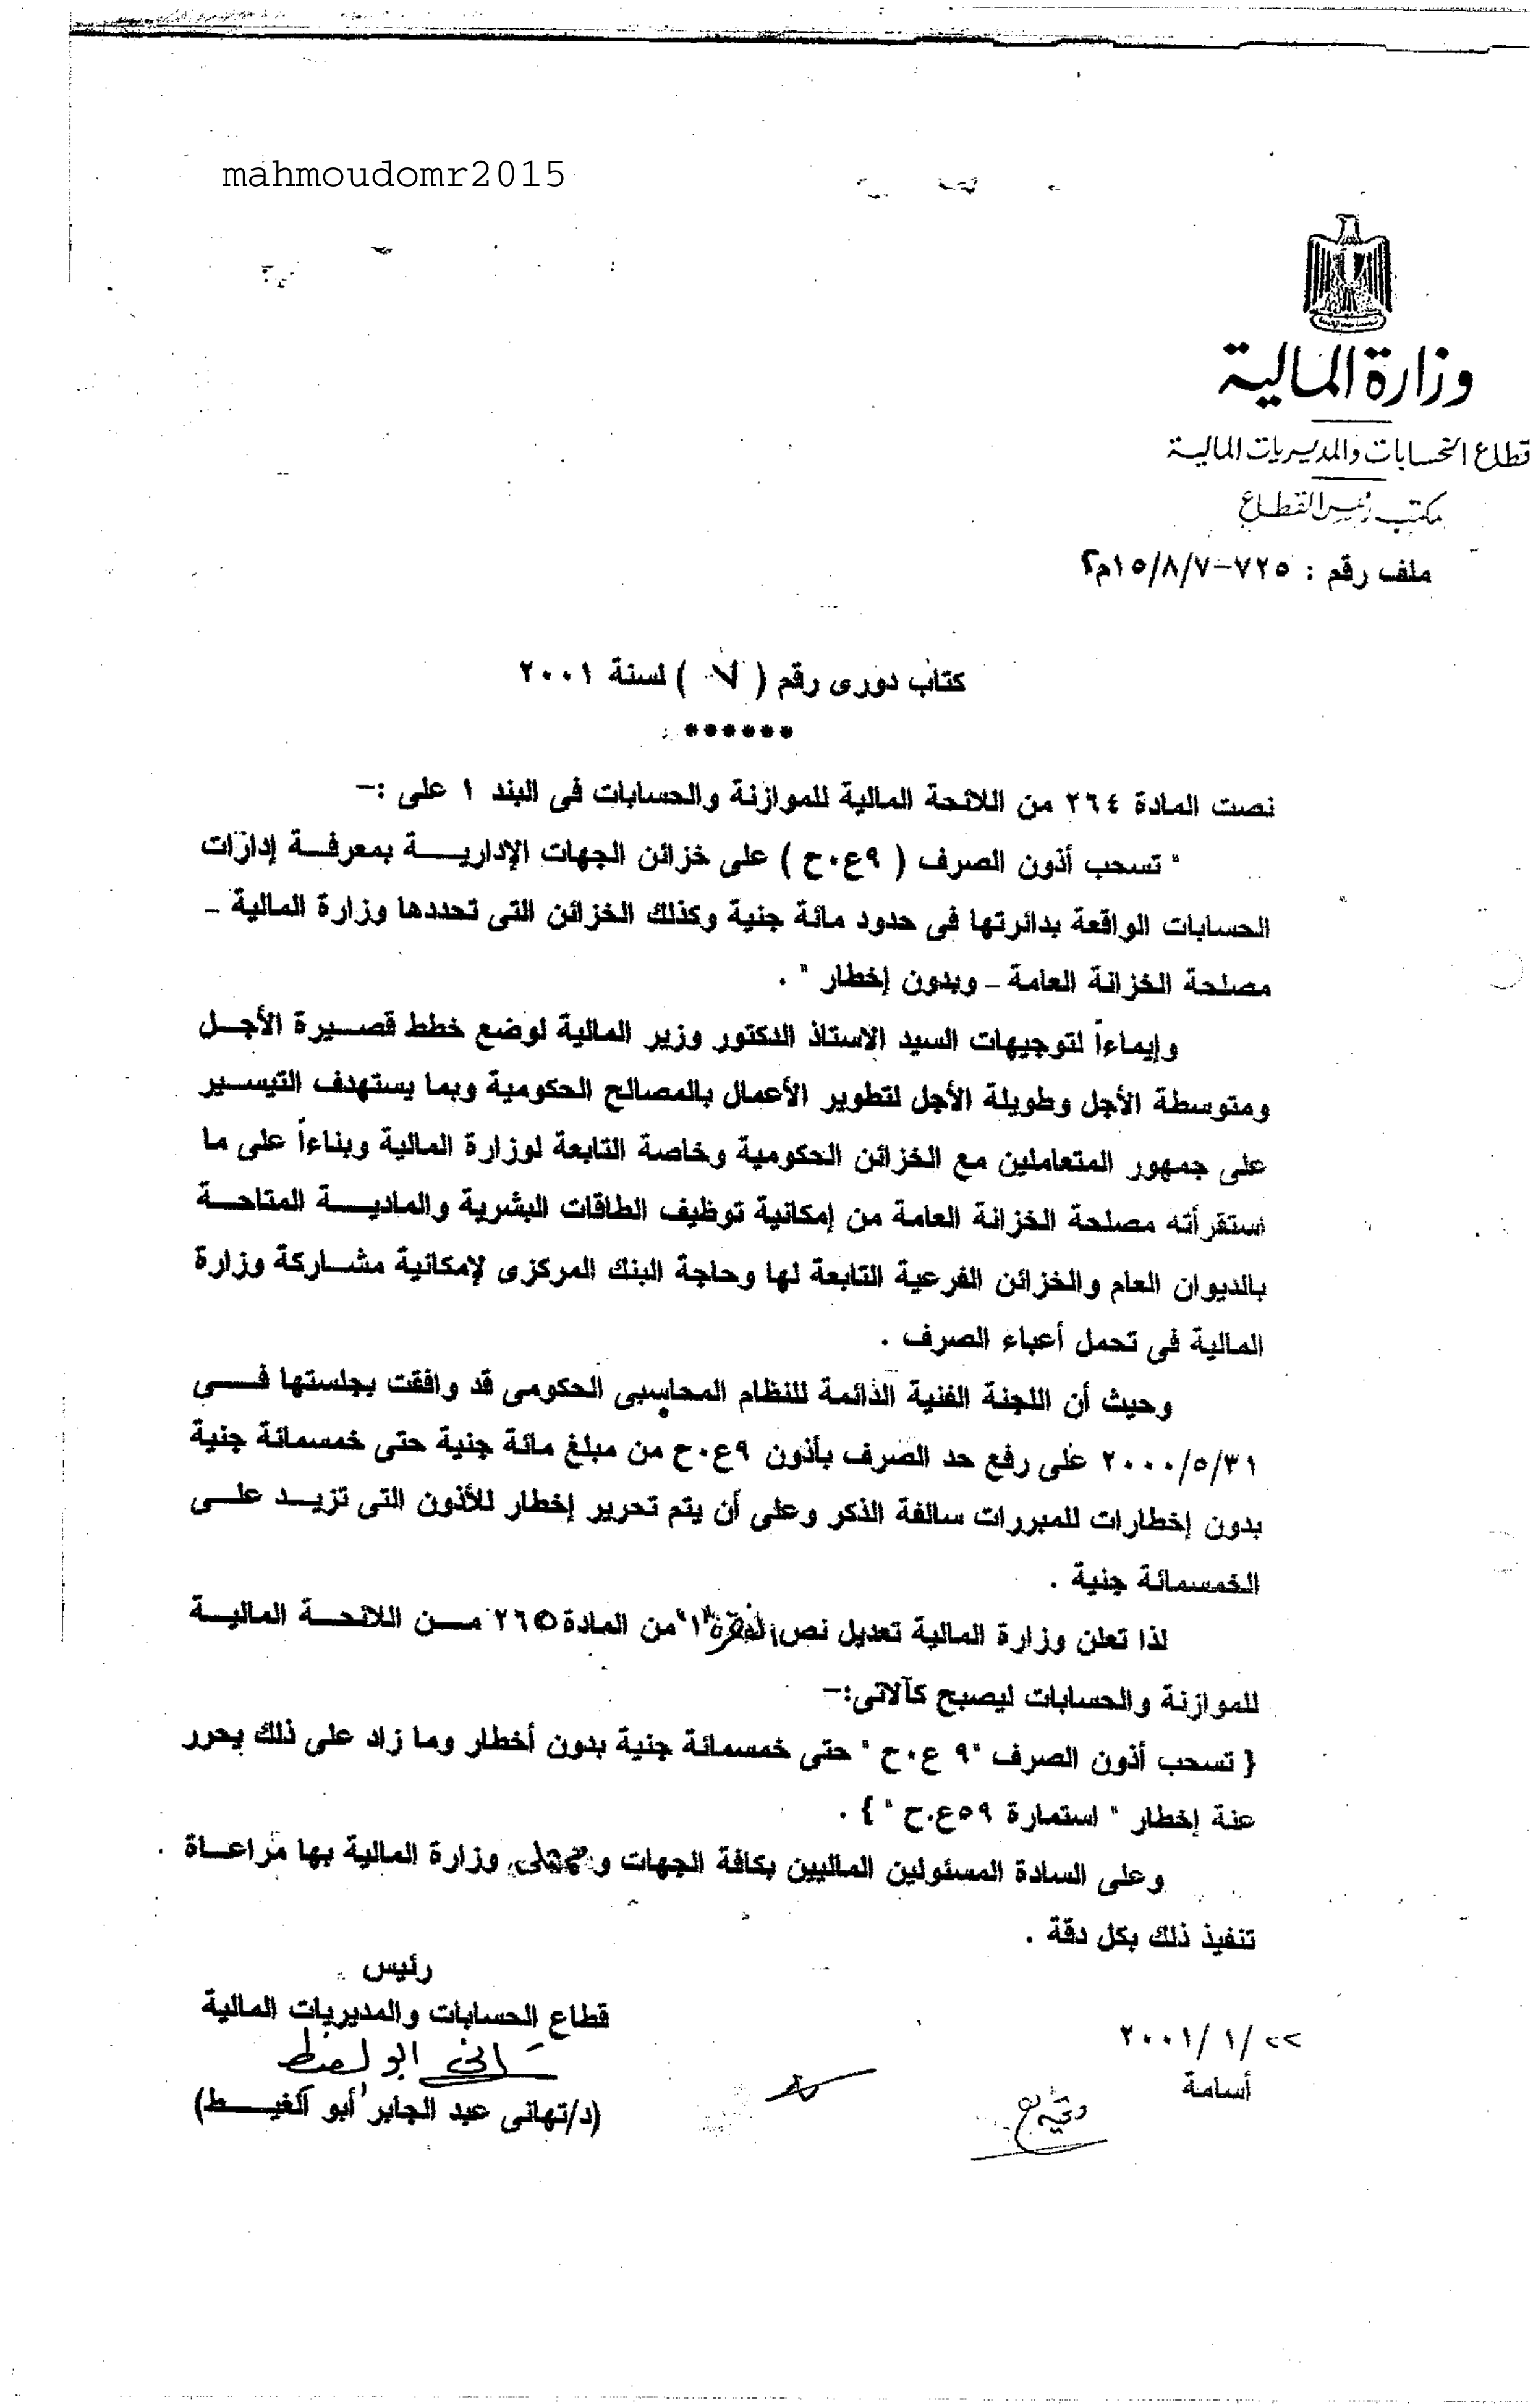 mahmoudomr2015
وزارة المالية
قطاع الحسابات والمديريات المالية
مكتب رئيس القطاع
ملف رقم : ٧٢٥-١٥/٨/٧م٢
كتاب دورى رقم ( ٧ ) لسنة ٢٠٠١
******
نصت المادة ٢٦٤ من اللائحة المالية للموازنة والحسابات فى البند ١ على :-
" تسحب أذون الصرف ( ٩ع٠ح ) على خزائن الجهات الإدارية بمعرفة إدارات
الحسابات الواقعة بدائرتها فى حدود مائة جنية وكذلك الخزائن التى تحددها وزارة المالية _
مصلحة الخزانة العامة _ وبدون إخطار " .
وإيماءاً لتوجيهات السيد الاستاذ الدكتور وزير المالية لوضع خطط قصيرة الأجل
ومتوسطة الأجل وطويلة الأجل لتطوير الأعمال بالمصالح الحكومية وبما يستهدف التيسير
على جمهور المتعاملين مع الخزائن الحكومية وخاصة التابعة لوزارة المالية وبناءاً على ما
استقرأته مصلحة الخزانة العامة من إمكانية توظيف الطاقات البشرية والمادية المتاحة
بالديوان العام والخزائن الفرعية التابعة لها وحاجة البنك المركزى لإمكانية مشاركة وزارة
المالية فى تحمل أعباء الصرف .
وحيث أن اللجنة الفنية الدائمة للنظام المحاسبى الحكومى قد وافقت بجلستها فى
٢٠٠٠/٥/٣١ على رفع حد الصرف بأذون ٩ع٠ح من مبلغ مائة جنية حتى خمسمائة جنية
بدون إخطارات للمبررات سالفة الذكر وعلى أن يتم تحرير إخطار للأذون التى تزيد على
الخمسمائة جنية .
لذا تعلن وزارة المالية تعديل نص الفقرة "١" من المادة ٢٦٥ من اللائحة المالية
للموازنة والحسابات ليصبح كآلاتى:-
{ تسحب أذون الصرف "٩ ع٠ح " حتى خمسمائة جنية بدون أخطار وما زاد على ذلك يحرر
عنة إخطار " استمارة ٥٩ع.ح " } .
وعلى السادة المسئولين الماليين بكافة الجهات و وزارة المالية بها مراعاة
تنفيذ ذلك بكل دقة .
رئيس
قطاع الحسابات والمديريات المالية
(د/تهانى عبد الجابر أبو الغيط)
٢٠٠١/١/٢٢
أسامة